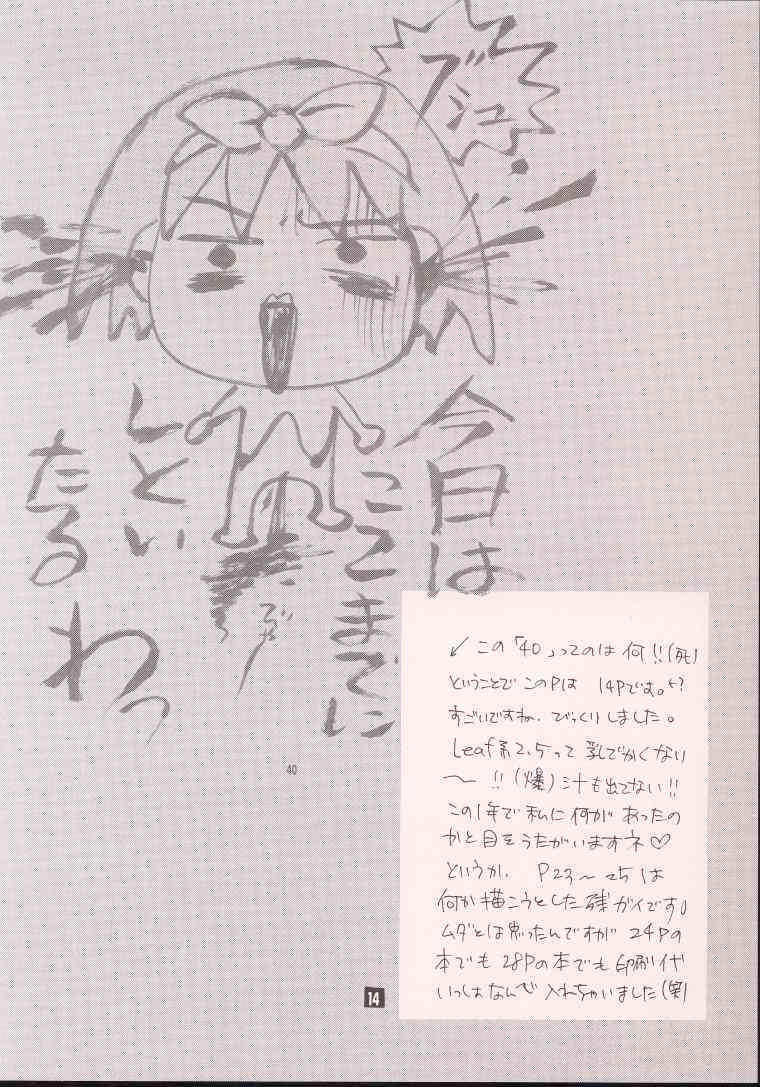 ブシュー
今日は
ここまでに
しとい
たるわっ
ビュー
40
↙この「40」ってのは何!!(死)
ということでこのPは 14Pです。
すごいですね。びっくりしました。
Leaf系2.5って 乳でかくない
〜!!(爆)汁も出てない!!
この1年で私に何があったの
かと目をうたがいますネ♡
というか、P23〜25は
何か描こうとした残ガイです。
ムダとは思ったんですが 24Pの
本でも 28Pの本でも印刷代
いっしょなんで 入れちゃいました(笑)
14